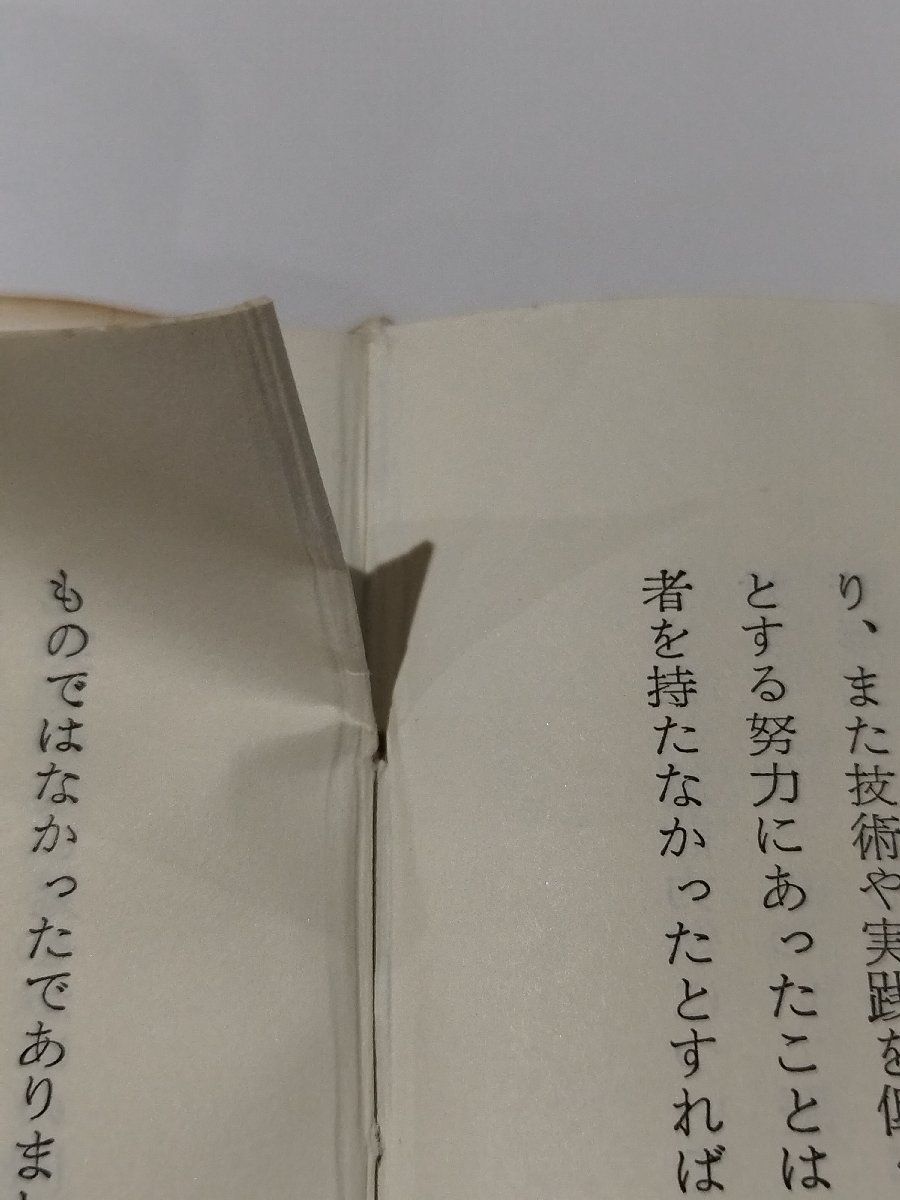 り、また技術や実践を
とする努力にあったことは
者を持たなかったとすれば
ものではなかったでありま